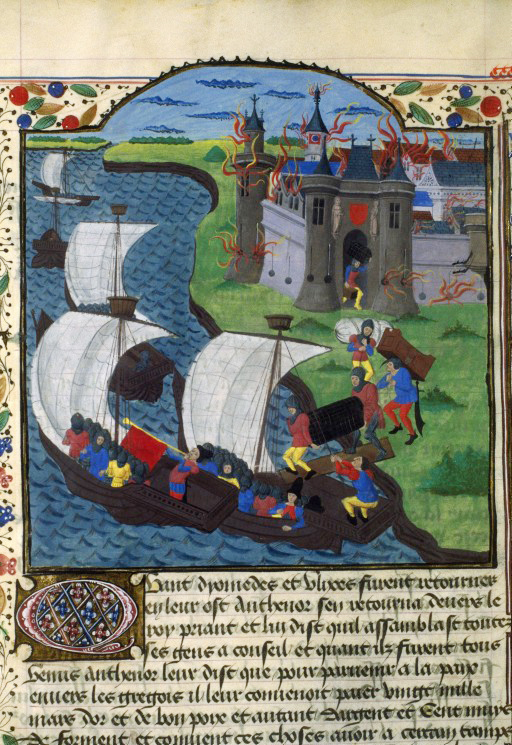 Quant dyomedes et vlixes furent retournez
en leur ost Anthenor sen retourna deuers le
roy priant et luy dist quil assamblast toutez
ses gens a conseil et quant ilz furent tous
venus Anthenor leur dist que pour paruenir a la paix
enuers les gregois il leur conuenoit paier vingt mille
mars dor et de bon poix et autant dargent et Cent muys
De forment et conuient ces choses auoir a certain temps